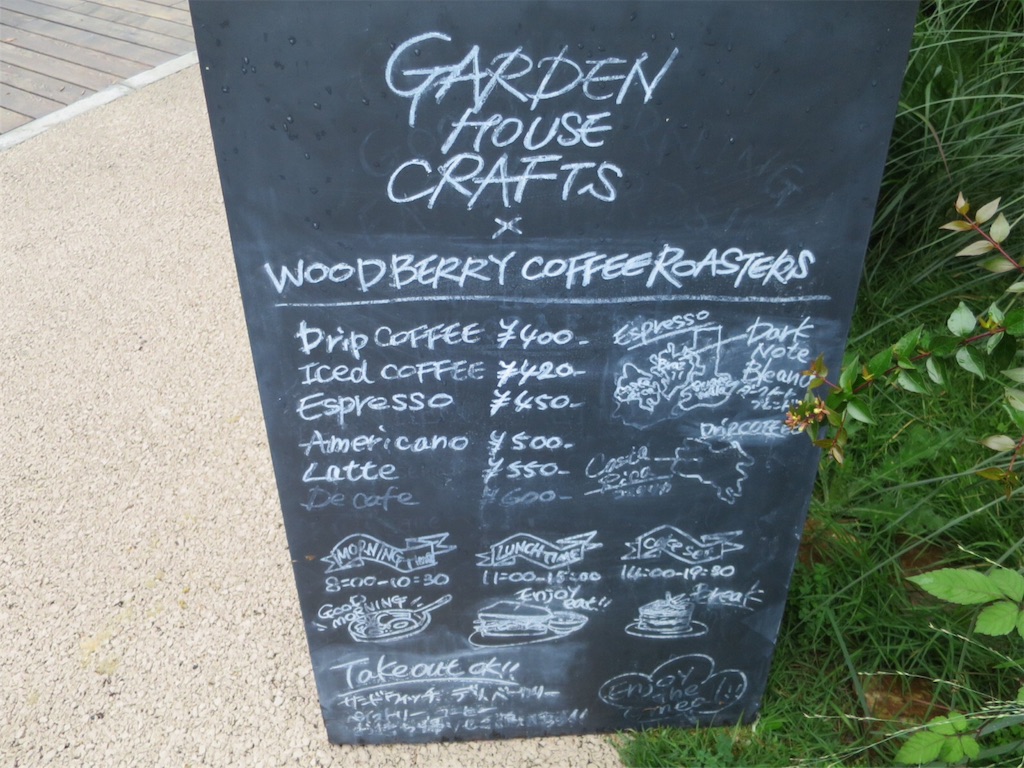 GARDEN
HOUSE
CRAFTS
×
WOODBERRY COFFEE ROASTERS
Drip COFFEE ¥400-
Iced COFFEE ¥420-
Espresso ¥450-
Americano ¥500-
Latte ¥550-
De cafe ¥600-
Espresso
Dark
Note
DRIP COFFEE
Costa
Rica
MORNING Time
8:00-10:30
GOOD
MORNING!!
LUNCH TIME
11:00-15:00
Enjoy
eat!!
Cafe SET
14:00-19:30
Break
Takeout ok!!
サンドウィッチ デリ
Enjoy
the
!!